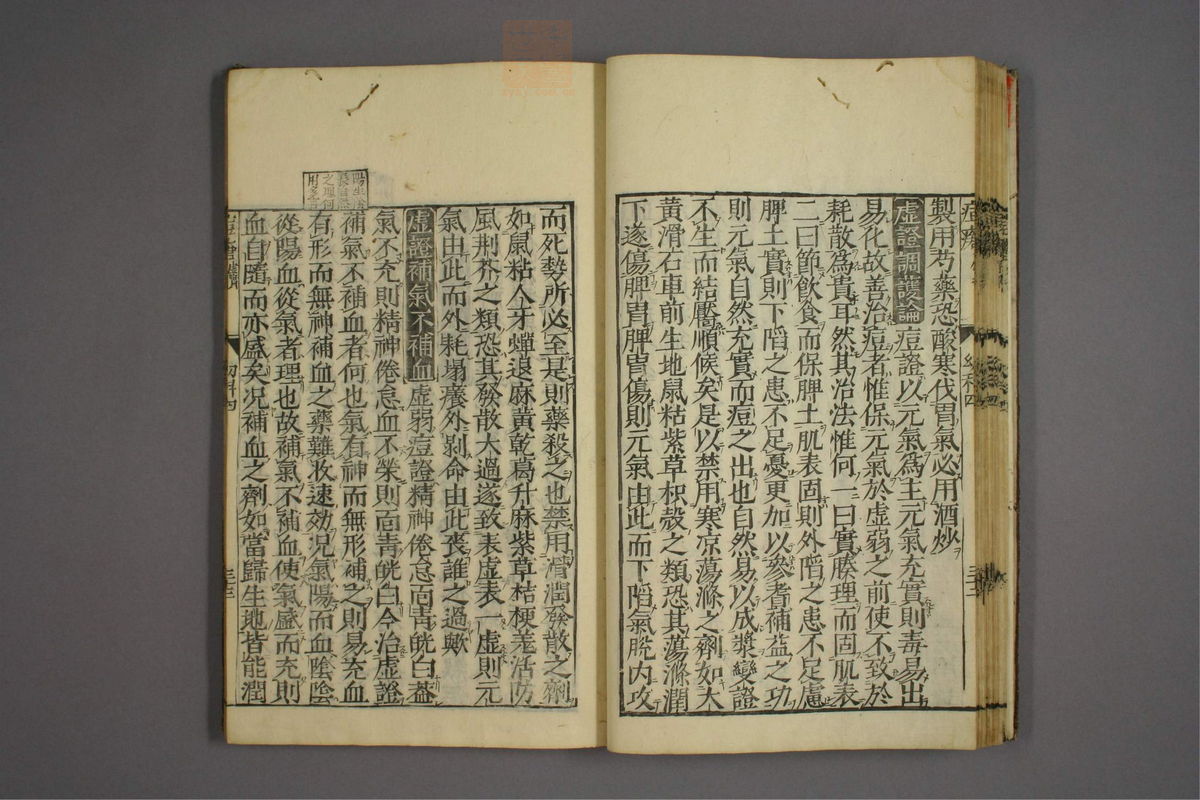 製用芍藥恐酸寒伐胃氣必用酒炒
虛證調護論痘證以元氣爲主元氣充實則毒易出
易化故善治痘者惟保元氣於虛弱之前使不致於
耗散爲貴耳然其治法惟何一曰實腠理而固肌表
二曰節飲食而保脾土肌表固則外陷之患不足慮
脾土實則下陷之患不足憂更加以參耆補益之功
則元氣自然充實而痘之出也自然易以成漿變證
不生而結靨順候矣是以禁用寒凉蕩滌之劑如大
黃滑石車前生地鼠粘紫草枳殼之類恐其蕩滌潤
下遂傷脾胃脾胃傷則元氣由此而下陷氣脫内攻
而死勢所必至是則藥殺之也禁用滑潤發散之劑
如鼠粘人牙蟬退麻黃乾葛升麻紫草桔梗羌活防
風荆芥之類恐其發散大過遂致表虛表一虛則元
氣由此而外耗塌癢外剝命由此喪誰之過歟
虛證補氣不補血虛弱痘證精神倦怠面靑㿠白葢
氣不充則精神倦怠血不榮則面靑㿠白今治虛證
補氣不補血者何也氣有神而無形補之則易充血
有形而無神補血之藥難收速効况氣陽而血陰陰
從陽血從氣者理也故補氣不補血使氣盛而充則
血自隨而亦盛矣况補血之劑如當歸生地皆能潤
幼科四